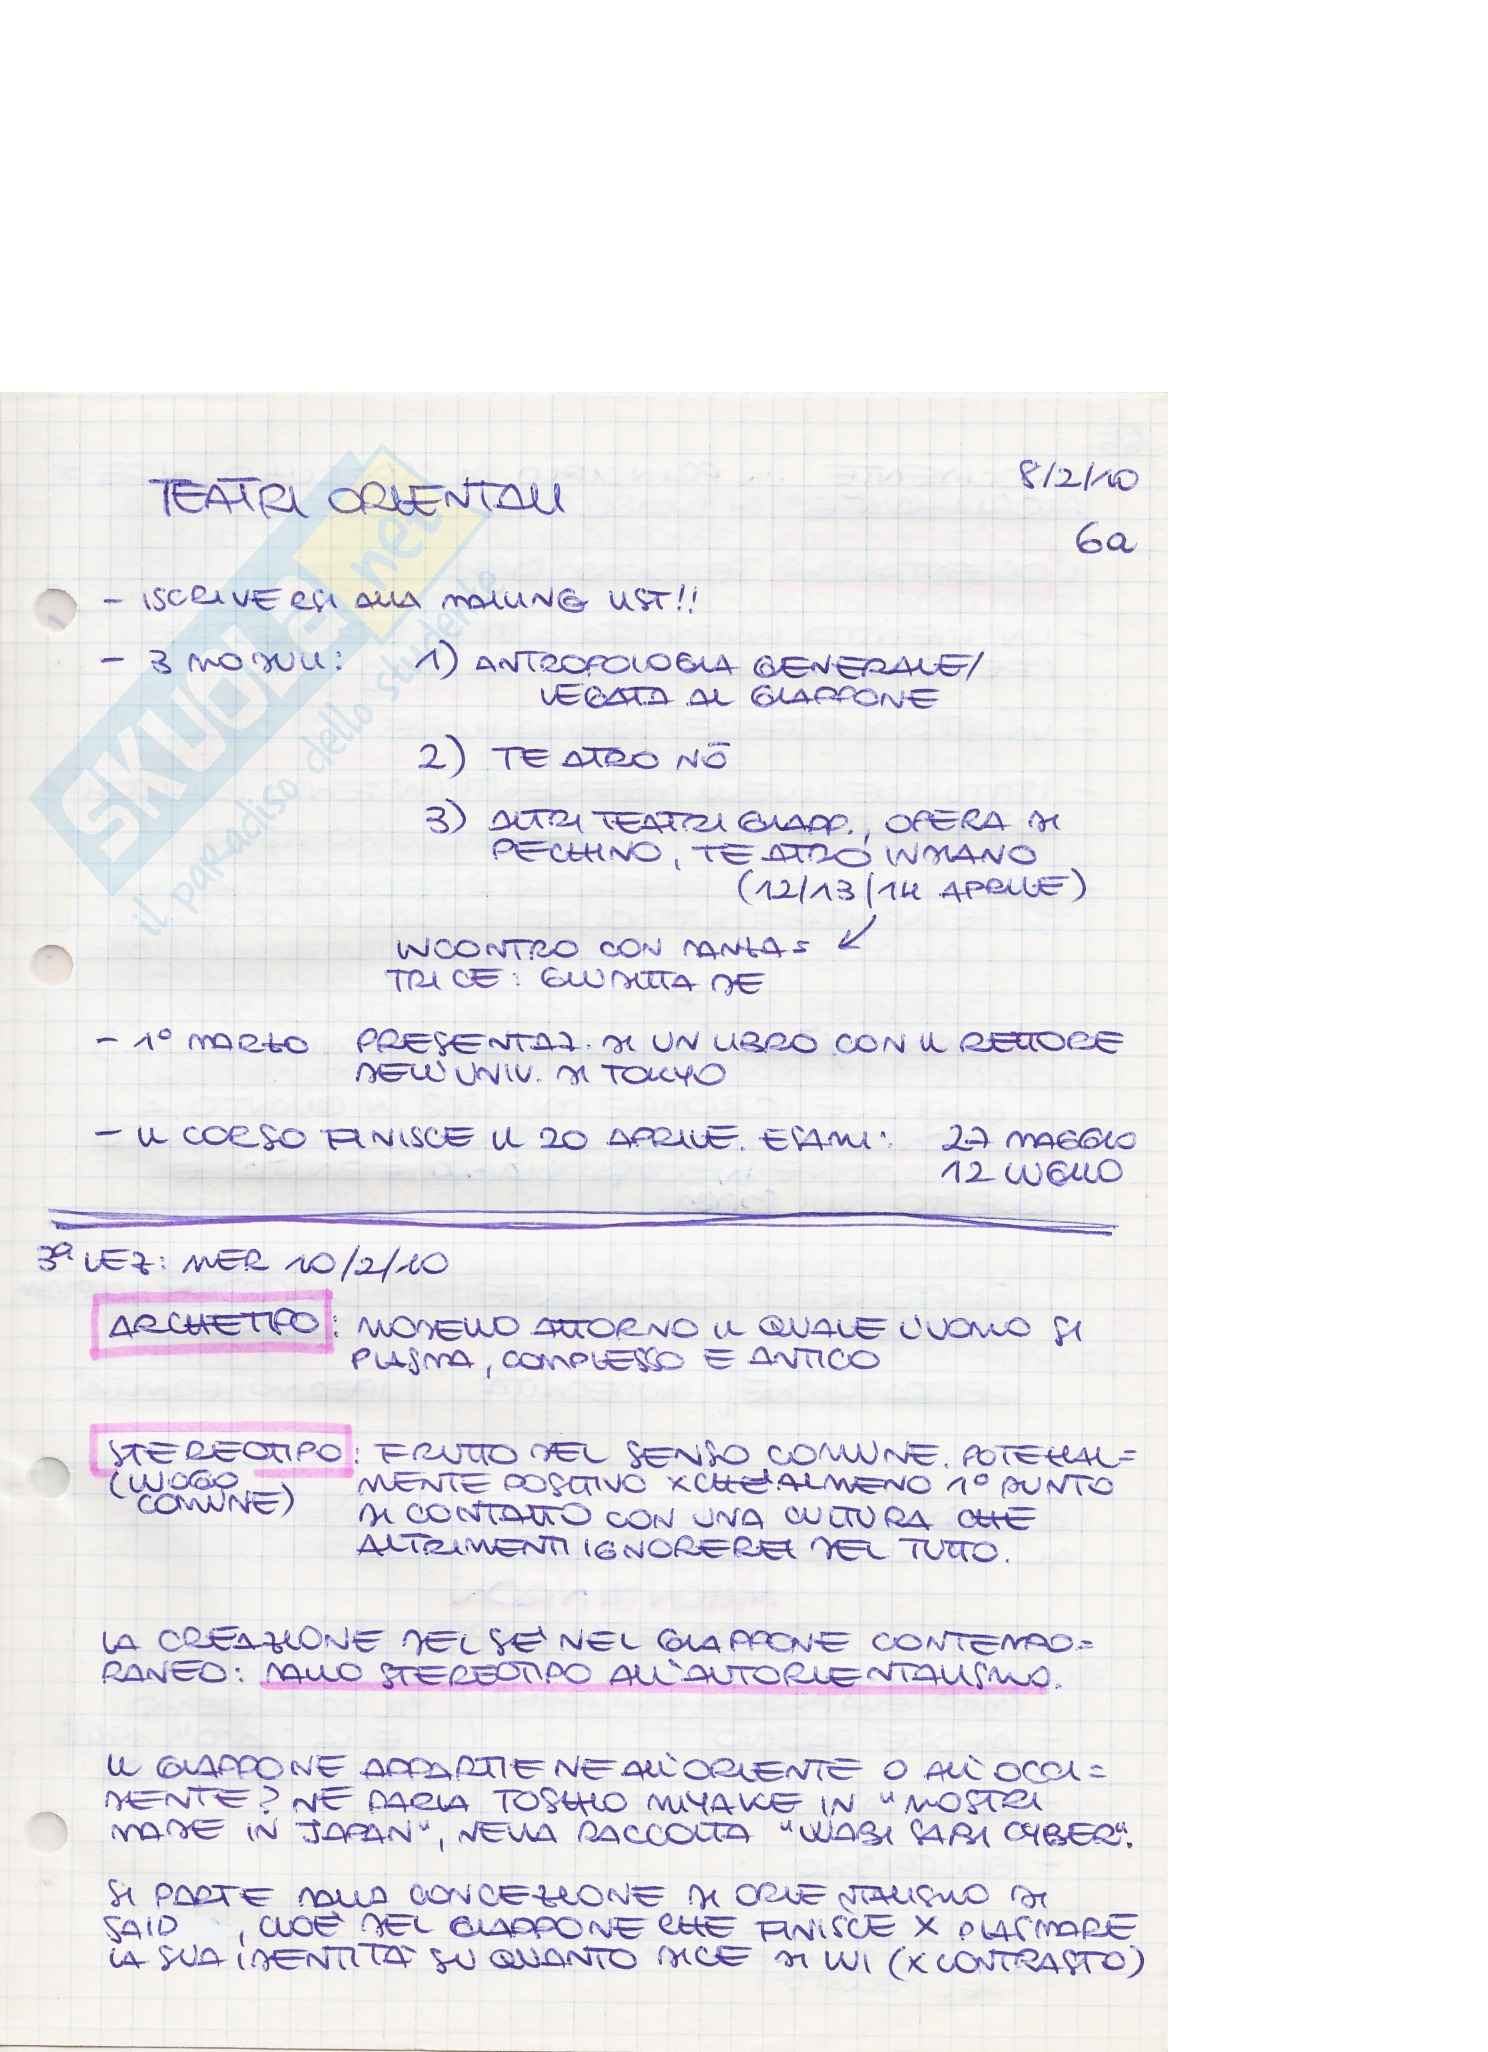 TEATRI ORIENTALI
8/2/10
6a
- ISCRIVERSI ALLA MAILING LIST!!
- 3 MODULI: 1) ANTROPOLOGIA GENERALE/
LEGATA AL GIAPPONE
2) TEATRO NŌ
3) ALTRI TEATRI GIAPP., OPERA DI
PECHINO, TEATRO INDIANO
(12/13/14 APRILE)
INCONTRO CON DANZA=
TRICE: GIUDITTA DE
- 1° MARZO PRESENTAZ. DI UN LIBRO CON IL RETTORE
DELL'UNIV. DI TOKYO
- IL CORSO FINISCE IL 20 APRILE. ESAMI: 27 MAGGIO
12 LUGLIO
3ª LEZ: MER 10/2/10
ARCHETIPO: MODELLO ATTORNO IL QUALE L'UOMO SI
PLASMA, COMPLESSO E ANTICO
STEREOTIPO: FRUTTO DEL SENSO COMUNE. POTENZIAL=
(LUOGO MENTE POSITIVO XCHE' ALMENO 1° PUNTO
COMUNE) DI CONTATTO CON UNA CULTURA CHE
ALTRIMENTI IGNOREREI DEL TUTTO.
LA CREAZIONE DEL SE' NEL GIAPPONE CONTEMPO=
RANEO: DALLO STEREOTIPO ALL'AUTORIENTALISMO.
IL GIAPPONE APPARTIENE ALL'ORIENTE O ALL'OCCI=
DENTE? NE PARLA TOSHIO MIYAKE IN "MOSTRI
MADE IN JAPAN", NELLA RACCOLTA "WABI SABI CYBER".
SI PARTE DALLA CONCEZIONE DI ORIENTALISMO DI
SAID , CIOE' DEL GIAPPONE CHE FINISCE X PLASMARE
LA SUA IDENTITA' SU QUANTO DICE DI LUI (X CONTRASTO)
SKUOLA.net
il paradiso dello studente